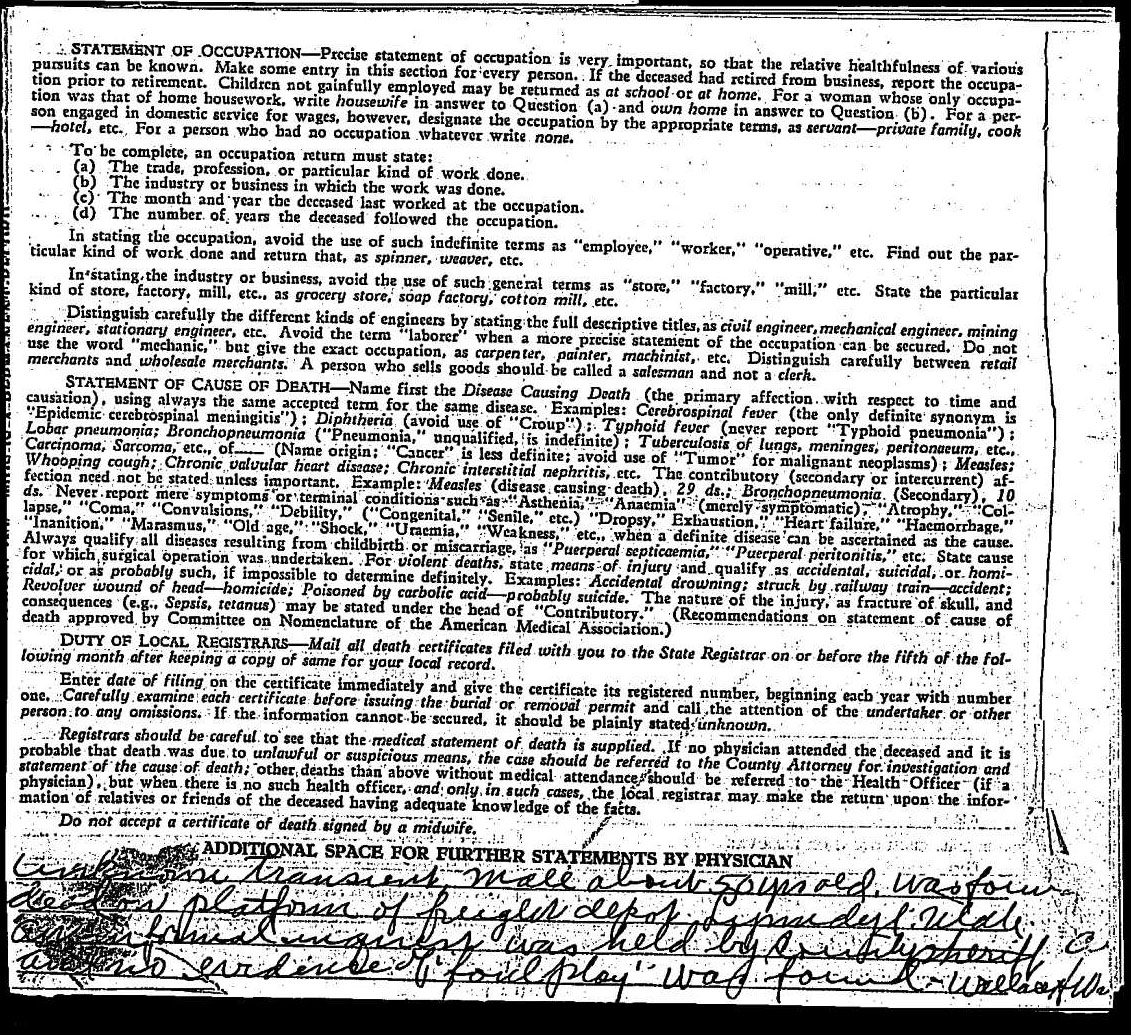 STATEMENT OF OCCUPATION—Precise statement of occupation is very important, so that the relative healthfulness of various
pursuits can be known. Make some entry in this section for every person. If the deceased had retired from business, report the occupa-
tion prior to retirement. Children not gainfully employed may be returned as at school or at home. For a woman whose only occupa-
tion was that of home housework, write housewife in answer to Question (a) and own home in answer to Question (b). For a per-
son engaged in domestic service for wages, however, designate the occupation by the appropriate terms, as servant—private family, cook
—hotel, etc. For a person who had no occupation whatever write none.
To be complete, an occupation return must state:
(a) The trade, profession, or particular kind of work done.
(b) The industry or business in which the work was done.
(c) The month and year the deceased last worked at the occupation.
(d) The number of years the deceased followed the occupation.
In stating the occupation, avoid the use of such indefinite terms as "employee," "worker," "operative," etc. Find out the par-
ticular kind of work done and return that, as spinner, weaver, etc.
In stating the industry or business, avoid the use of such general terms as "store," "factory," "mill," etc. State the particular
kind of store, factory, mill, etc., as grocery store, soap factory, cotton mill, etc.
Distinguish carefully the different kinds of engineers by stating the full descriptive titles, as civil engineer, mechanical engineer, mining
engineer, stationary engineer, etc. Avoid the term "laborer" when a more precise statement of the occupation can be secured. Do not
use the word "mechanic," but give the exact occupation, as carpenter, painter, machinist, etc. Distinguish carefully between retail
merchants and wholesale merchants. A person who sells goods should be called a salesman and not a clerk.
STATEMENT OF CAUSE OF DEATH—Name first the Disease Causing Death (the primary affection with respect to time and
causation), using always the same accepted term for the same disease. Examples: Cerebrospinal fever (the only definite synonym is
"Epidemic cerebrospinal meningitis"); Diphtheria (avoid use of "Croup"); Typhoid fever (never report "Typhoid pneumonia");
Lobar pneumonia; Bronchopneumonia ("Pneumonia," unqualified, is indefinite); Tuberculosis of lungs, meninges, peritonaeum, etc.,
Carcinoma, Sarcoma, etc., of____ (Name origin; "Cancer" is less definite; avoid use of "Tumor" for malignant neoplasms); Measles;
Whooping cough; Chronic valvular heart disease; Chronic interstitial nephritis, etc. The contributory (secondary or intercurrent) af-
fection need not be stated unless important. Example: Measles (disease causing death), 29 ds.; Bronchopneumonia (Secondary), 10
ds. Never report mere symptoms or terminal conditions such as "Asthenia," "Anaemia" (merely symptomatic), "Atrophy," "Col-
lapse," "Coma," "Convulsions," "Debility," ("Congenital," "Senile," etc.) "Dropsy," Exhaustion," "Heart failure," "Haemorrhage,"
"Inanition," "Marasmus," "Old age," "Shock," "Uraemia," "Weakness," etc., when a definite disease can be ascertained as the cause.
Always qualify all diseases resulting from childbirth or miscarriage, as "Puerperal septicaemia," "Puerperal peritonitis," etc. State cause
for which surgical operation was undertaken. For violent deaths, state means of injury and qualify as accidental, suicidal, or homi-
cidal, or as probably such, if impossible to determine definitely. Examples: Accidental drowning; struck by railway train—accident;
Revolver wound of head—homicide; Poisoned by carbolic acid—probably suicide. The nature of the injury, as fracture of skull, and
consequences (e.g., Sepsis, tetanus) may be stated under the head of "Contributory." (Recommendations on statement of cause of
death approved by Committee on Nomenclature of the American Medical Association.)
DUTY OF LOCAL REGISTRARS—Mail all death certificates filed with you to the State Registrar on or before the fifth of the fol-
lowing month after keeping a copy of same for your local record.
Enter date of filing on the certificate immediately and give the certificate its registered number, beginning each year with number
one. Carefully examine each certificate before issuing the burial or removal permit and call the attention of the undertaker or other
person to any omissions. If the information cannot be secured, it should be plainly stated unknown.
Registrars should be careful to see that the medical statement of death is supplied. If no physician attended the deceased and it is
probable that death was due to unlawful or suspicious means, the case should be referred to the County Attorney for investigation and
statement of the cause of death; other deaths than above without medical attendance should be referred to the Health Officer (if a
physician), but when there is no such health officer, and only in such cases, the local registrar may make the return upon the infor-
mation of relatives or friends of the deceased having adequate knowledge of the facts.
Do not accept a certificate of death signed by a midwife.
ADDITIONAL SPACE FOR FURTHER STATEMENTS BY PHYSICIAN
Unknown transient male about 50 yrs old, was foun
dead on platform of freight depot, Lynndyl, Utah.
informal inquest was held by County sheriff
and no evidence of "foul play" was found - Wallace H Wa